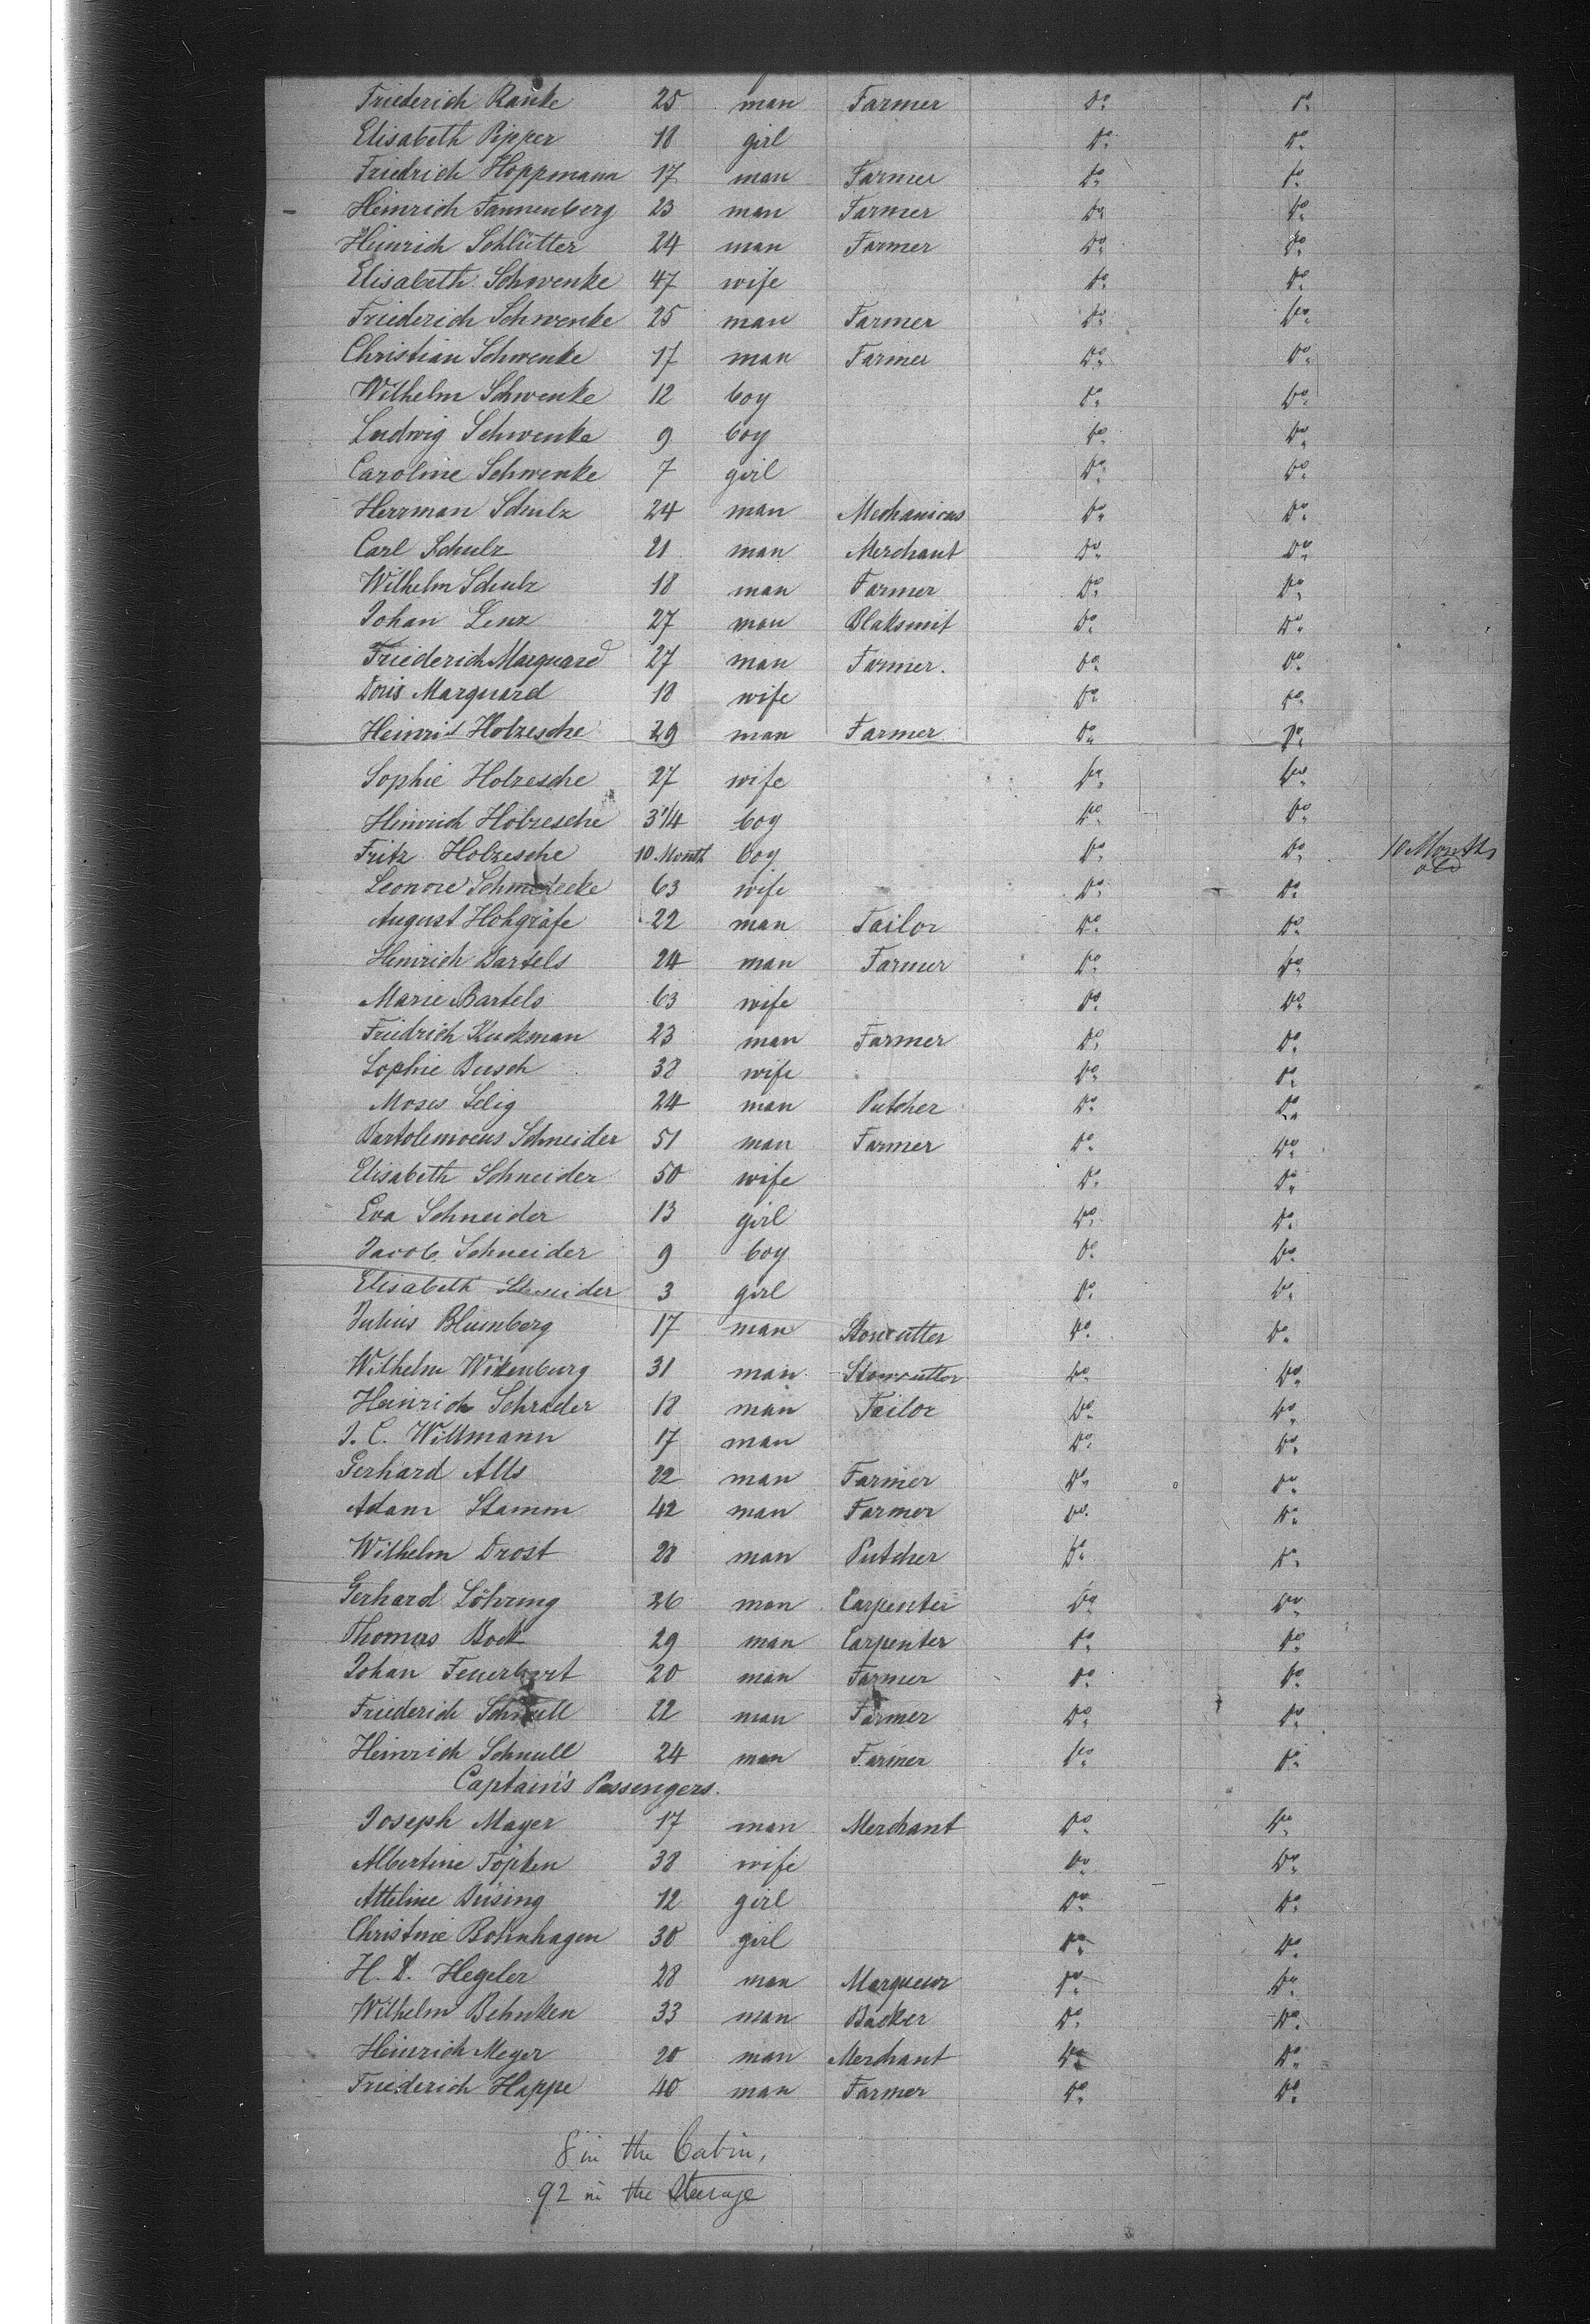 Friederich Ranke 25 man Farmer Do. Do.
Elisabeth Pipper 18 girl Do. Do.
Friedrich Hoppmann 17 man Farmer Do. Do.
Heinrich Tannenberg 23 man Farmer Do. Do.
Heinrich Schlütter 24 man Farmer Do. Do.
Elisabeth Schwenke 47 wife Do. Do.
Friederich Schwenke 25 man Farmer Do. Do.
Christian Schwenke 17 man Farmer Do. Do.
Wilhelm Schwenke 12 boy Do. Do.
Ludwig Schwenke 9 boy Do. Do.
Caroline Schwenke 7 girl Do. Do.
Herrman Schulz 24 man Mechanicus Do. Do.
Carl Schulz 21 man Merchant Do. Do.
Wilhelm Schulz 18 man Farmer Do. Do.
Johan Lenz 27 man Blaksmit Do. Do.
Friederich Marquard 27 man Farmer. Do. Do.
Doris Marquard 18 wife Do. Do.
Heinrich Holzesche 29 man Farmer Do. Do.
Sophie Holzesche 27 wife Do. Do.
Heinrich Holzesche 3 1/4 boy Do. Do.
Fritz Holzesche 10 Month boy Do. Do. 10 Months
old
Leonore 63 wife Do. Do.
August Hohgräfe 22 man Tailor Do. Do.
Heinrich Bartels 24 man Farmer Do. Do.
Marie Bartels 63 wife Do. Do.
Friedrich Kuckman 23 man Farmer Do. Do.
Sophie Busch 38 wife Do. Do.
Moses Selig 24 man Putcher Do. Do.
Bartolemoeus Schneider 51 man Farmer Do. Do.
Elisabeth Schneider 50 wife Do. Do.
Eva Schneider 13 girl Do. Do.
Jacob Schneider 9 boy Do. Do.
Elisabeth Schneider 3 girl Do. Do.
Julius Blumberg 17 man Stoncutter Do. Do.
Wilhelm Wikenburg 31 man Stoncutter Do. Do.
Heinrich Schrader 18 man Tailor Do. Do.
J. C. Willmann 17 man Do. Do.
Gerhard Alts 22 man Farmer Do. Do.
Adam Stamm 42 man Farmer Do. Do.
Wilhelm Drost 28 man Putcher Do. Do.
Gerhard Löhring 26 man Carpenter Do. Do.
Thomas Bock 29 man Carpenter Do. Do.
Johan 20 man Farmer Do. Do.
Friederich Schnull 22 man Farmer Do. Do.
Heinrich Schnull 24 man Farmer Do. Do.
Captain's Passengers.
Joseph Mayer 17 man Merchant Do. Do.
Albertine Töpken 38 wife Do. Do.
Atteline Büsing 12 girl Do. Do.
Christine Bohnhagen 30 girl Do. Do.
H. D. Hegeler 28 man Marqueur Do. Do.
Wilhelm Behnken 33 man Backer Do. Do.
Heinrich Meyer 20 man Merchant Do. Do.
Friederich Happe 40 man Farmer Do. Do.
8 in the Cabin,
92 in the Steerage